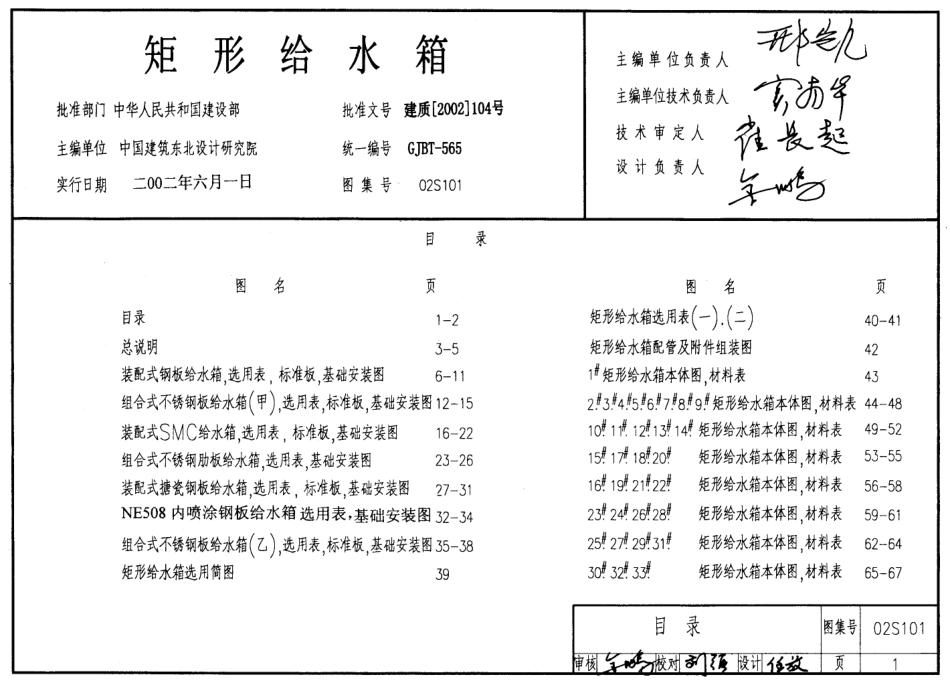 矩形给水箱
批准部门 中华人民共和国建设部 批准文号 建质[2002]104号
主编单位 中国建筑东北设计研究院 统一编号 GJBT-565
实行日期 二00二年六月一日 图集号 02S101
主编单位负责人
主编单位技术负责人
技术审定人 崔长起
设计负责人
目 录
图 名 页
目录 1-2
总说明 3-5
装配式钢板给水箱,选用表,标准板,基础安装图 6-11
组合式不锈钢板给水箱(甲),选用表,标准板,基础安装图 12-15
装配式SMC给水箱,选用表,标准板,基础安装图 16-22
组合式不锈钢肋板给水箱,选用表,基础安装图 23-26
装配式搪瓷钢板给水箱,选用表,标准板,基础安装图 27-31
NE508内喷涂钢板给水箱选用表,基础安装图 32-34
组合式不锈钢板给水箱(乙),选用表,标准板,基础安装图 35-38
矩形给水箱选用简图 39
图 名 页
矩形给水箱选用表(一).(二) 40-41
矩形给水箱配管及附件组装图 42
1#矩形给水箱本体图,材料表 43
2#.3#.4#.5#.6#.7#.8#.9#.矩形给水箱本体图,材料表 44-48
10#.11#.12#.13#.14# 矩形给水箱本体图,材料表 49-52
15#.17#.18#.20#. 矩形给水箱本体图,材料表 53-55
16#.19#.21#.22#. 矩形给水箱本体图,材料表 56-58
23#.24#.26#.28#. 矩形给水箱本体图,材料表 59-61
25#.27#.29#.31#. 矩形给水箱本体图,材料表 62-64
30#.32#.33#. 矩形给水箱本体图,材料表 65-67
目 录 图集号 02S101
审核 校对 刘强 设计 任放 页 1